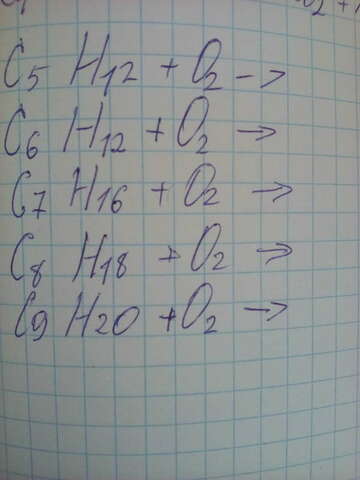 C5 H12 + O2 ->
C6 H12 + O2 ->
C7 H16 + O2 ->
C8 H18 + O2 ->
C9 H20 + O2 ->